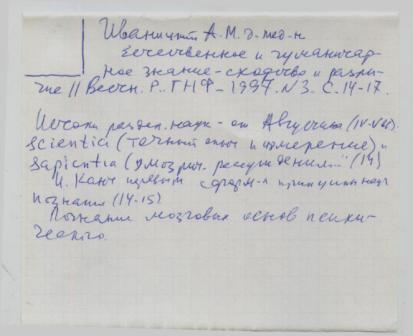 Иваницкий А.М. д-мед-н
Естественное и гуманитар
ное знание – сходство и разли-
чие // Вестн. Р.ГНФ – 1997. N3. С. 14-17.
Истоки раздел. наук – от Августина (IV-V вв.)
scientia (точный опыт и измерение) и
sapientia (умозрит. рассуждения..." (14)
И. Кант первым сформ-л принципы науч
познания (14-15)
Познание мозговых основ психи-
ческого.